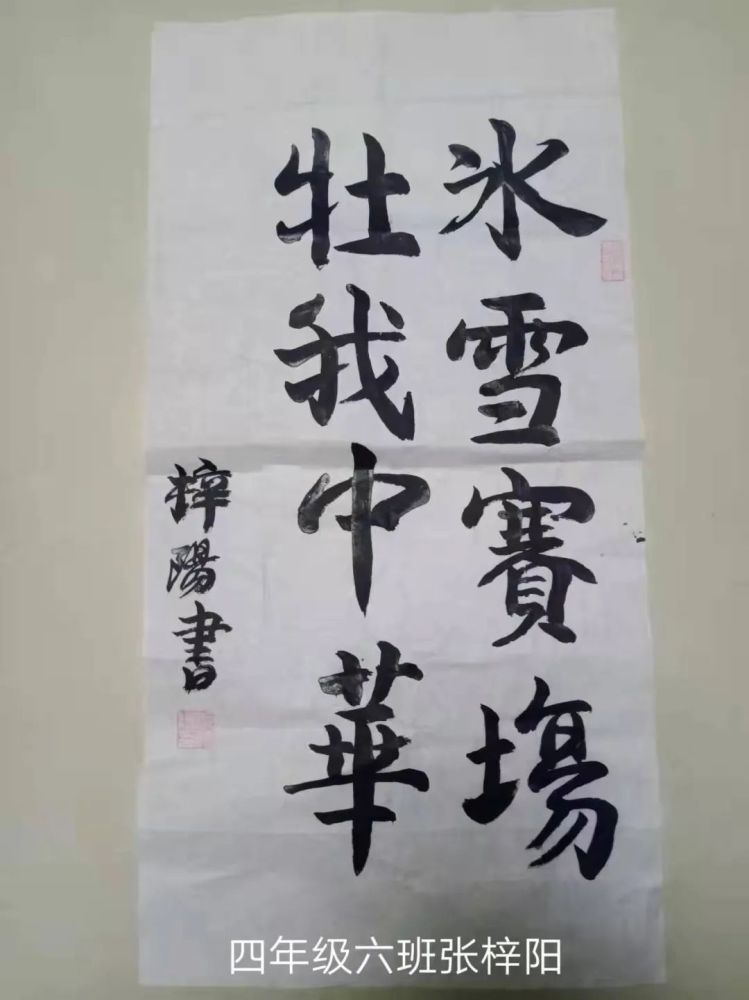 冰雪賽場
壮我中華
梓陽書
四年级六班张梓阳